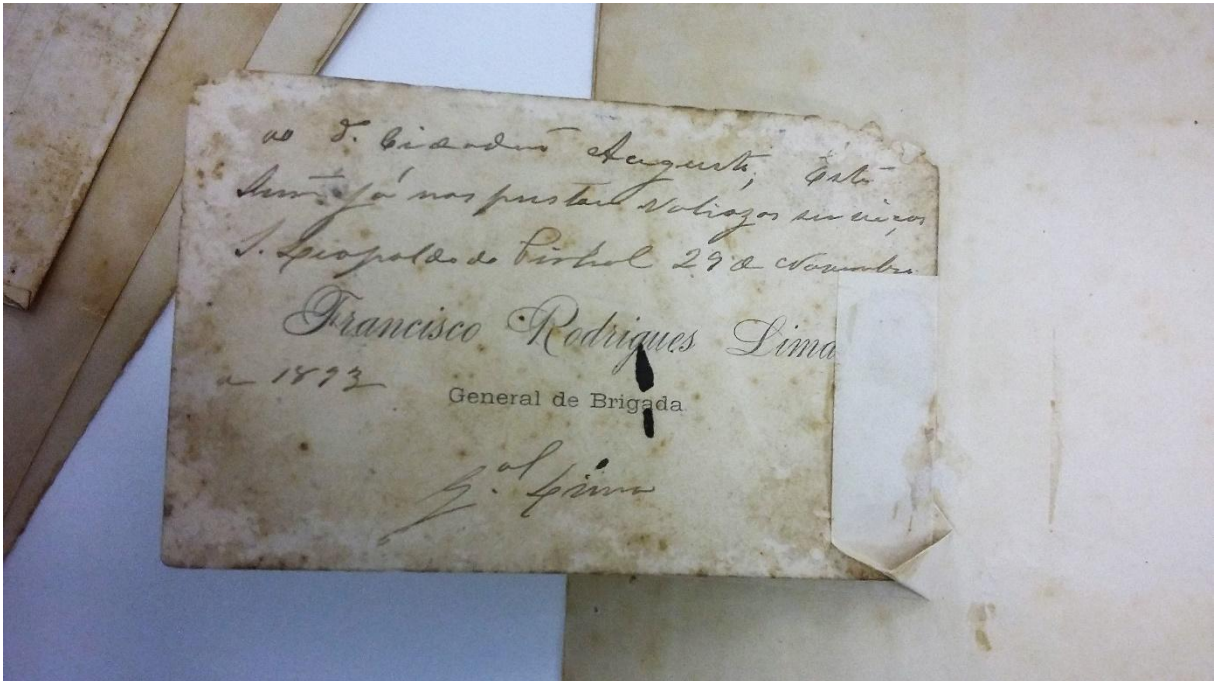 ao D. Cidadão Augusto, Este
já nos prestou valiozos serviços
S. Leopoldo do 29 de Novembro
Francisco Rodrigues Lima
1893
General de Brigada
G.al Lima